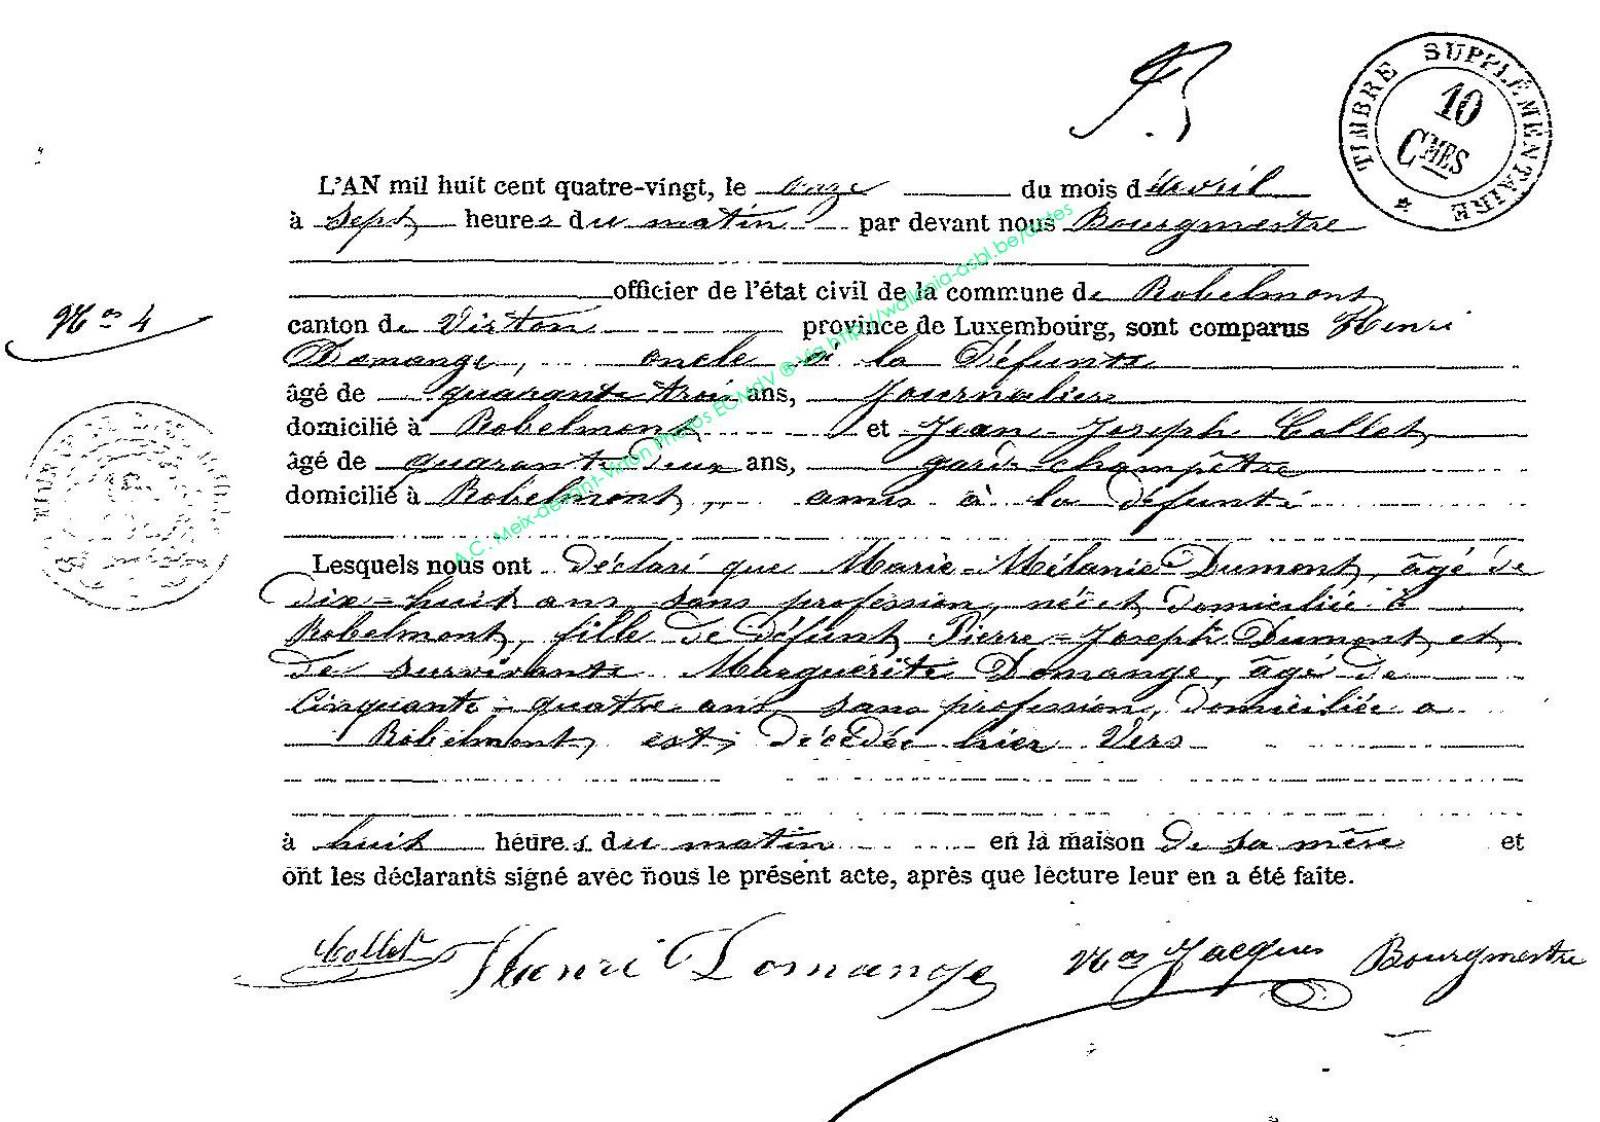 TIMBRE SUPPLÉMENTAIRE
10
CMES
L'AN mil huit cent quatre-vingt, le onze du mois d'avril
à sept heures du matin par devant nous Bourgmestre
officier de l'état civil de la commune de Robelmont
N° 4
canton de Virton province de Luxembourg, sont comparus Henri
Domange, oncle à la Défunte
âgé de quarante trois ans, Journalier
domicilié à Robelmont et Jean-Joseph Collet
âgé de quarante Deux ans, garde-champêtre
domicilié à Robelmont, amis à la défunte
Lesquels nous ont Déclaré que Marie-Mélanie Dumont, âgé de
dix-huit ans sans profession, née et domiciliée à
Robelmont, fille de défunt Pierre-Joseph Dumont et
de survivante Marguérite Domange, âgé de
Cinquante-quatre ans sans profession, Domiciliée a
Robelmont, est Décédée hier Vers
à huit heures du matin en la maison De sa mère et
ont les déclarants signé avec nous le présent acte, après que lecture leur en a été faite.
Collet Henri Domange Jacques Bourgmestre
A.C. Meix-devant-Virton Photos ECMdV ® Via http://wallonia-asbl.be/actes